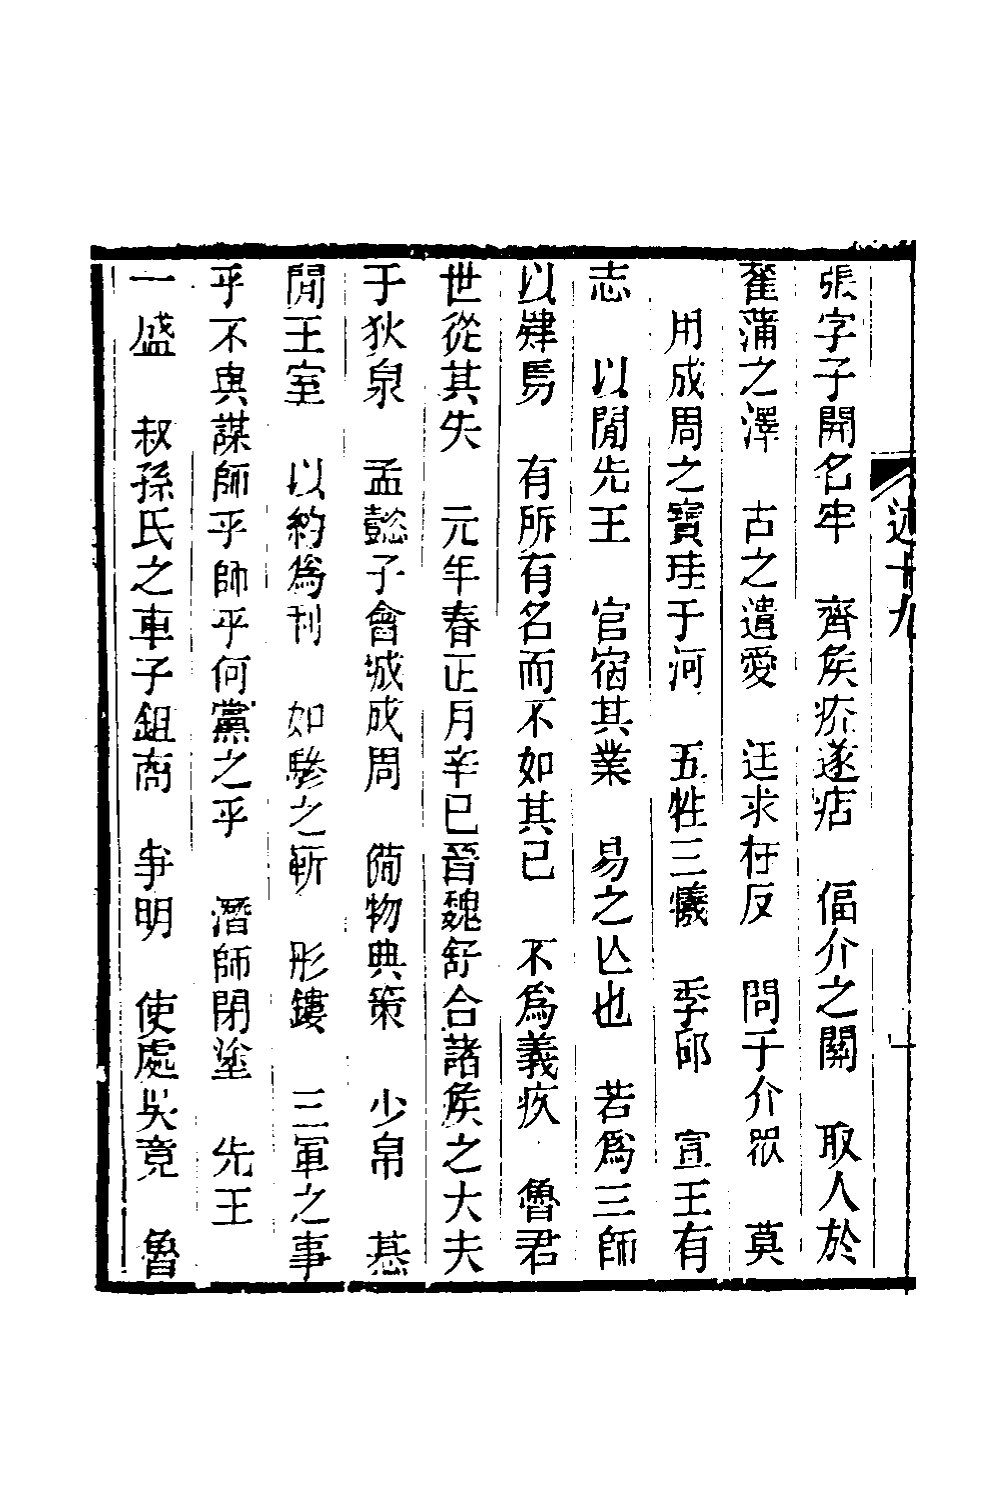 述十九
一
張字子開名牢　齊矦疥遂痁　偪介之關　取人於
萑蒲之澤　古之遺愛　迋求枉反　問于介眾　莫
用成周之寶珪于河　五牲三犧　季郈　宣王有
志　以閒先王　官宿其業　易之亾也　若爲三師
以肄焉　有所有名而不如其已　不爲義疚　魯君
世從其失　元年春正月辛巳晉魏舒合諸矦之大夫
于狄泉　孟懿子會城成周　備物典策　少帛　惎
閒王室　以約爲刊　如驂之靳　形鏤　三軍之事
乎不與謀師乎師乎何黨之乎　潛師閉塗　先王
一盛　叔孫氏之車子鉏商　爭明　使處吳竟　魯